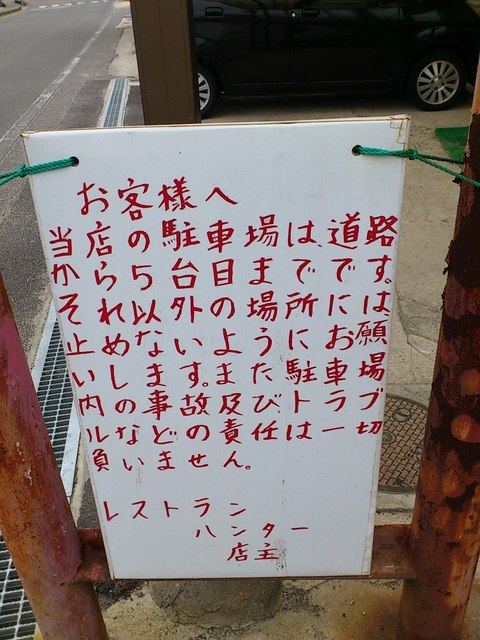 お客様へ
当店の駐車場は、道路
から5台目まで です。
それ以外の場所には
止めないようにお願
いします。また駐車場
内の事故及びトラブ
ルなどの責任は一切
負いません。
レストラン
ハンター
店主